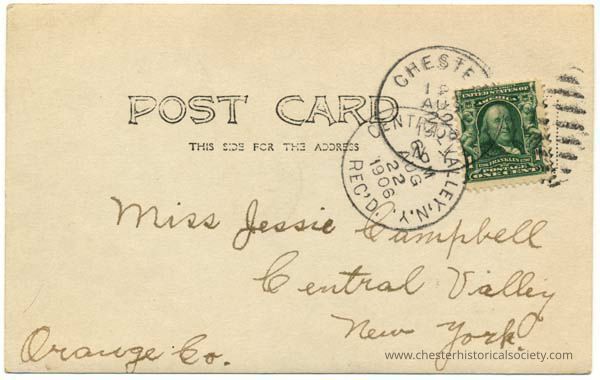 POST CARD
THIS SIDE FOR THE ADDRESS
CHESTE
AU
UNITED STATES OF
AMERICA
FRANKLIN
POSTAGE
ONE CENT
CENTRAL VALLEY, N.Y.
AUG
22
1906
REC'D.
Miss Jessie Campbell
Central Valley
New York.
Orange Co.
www.chesterhistoricalsociety.com